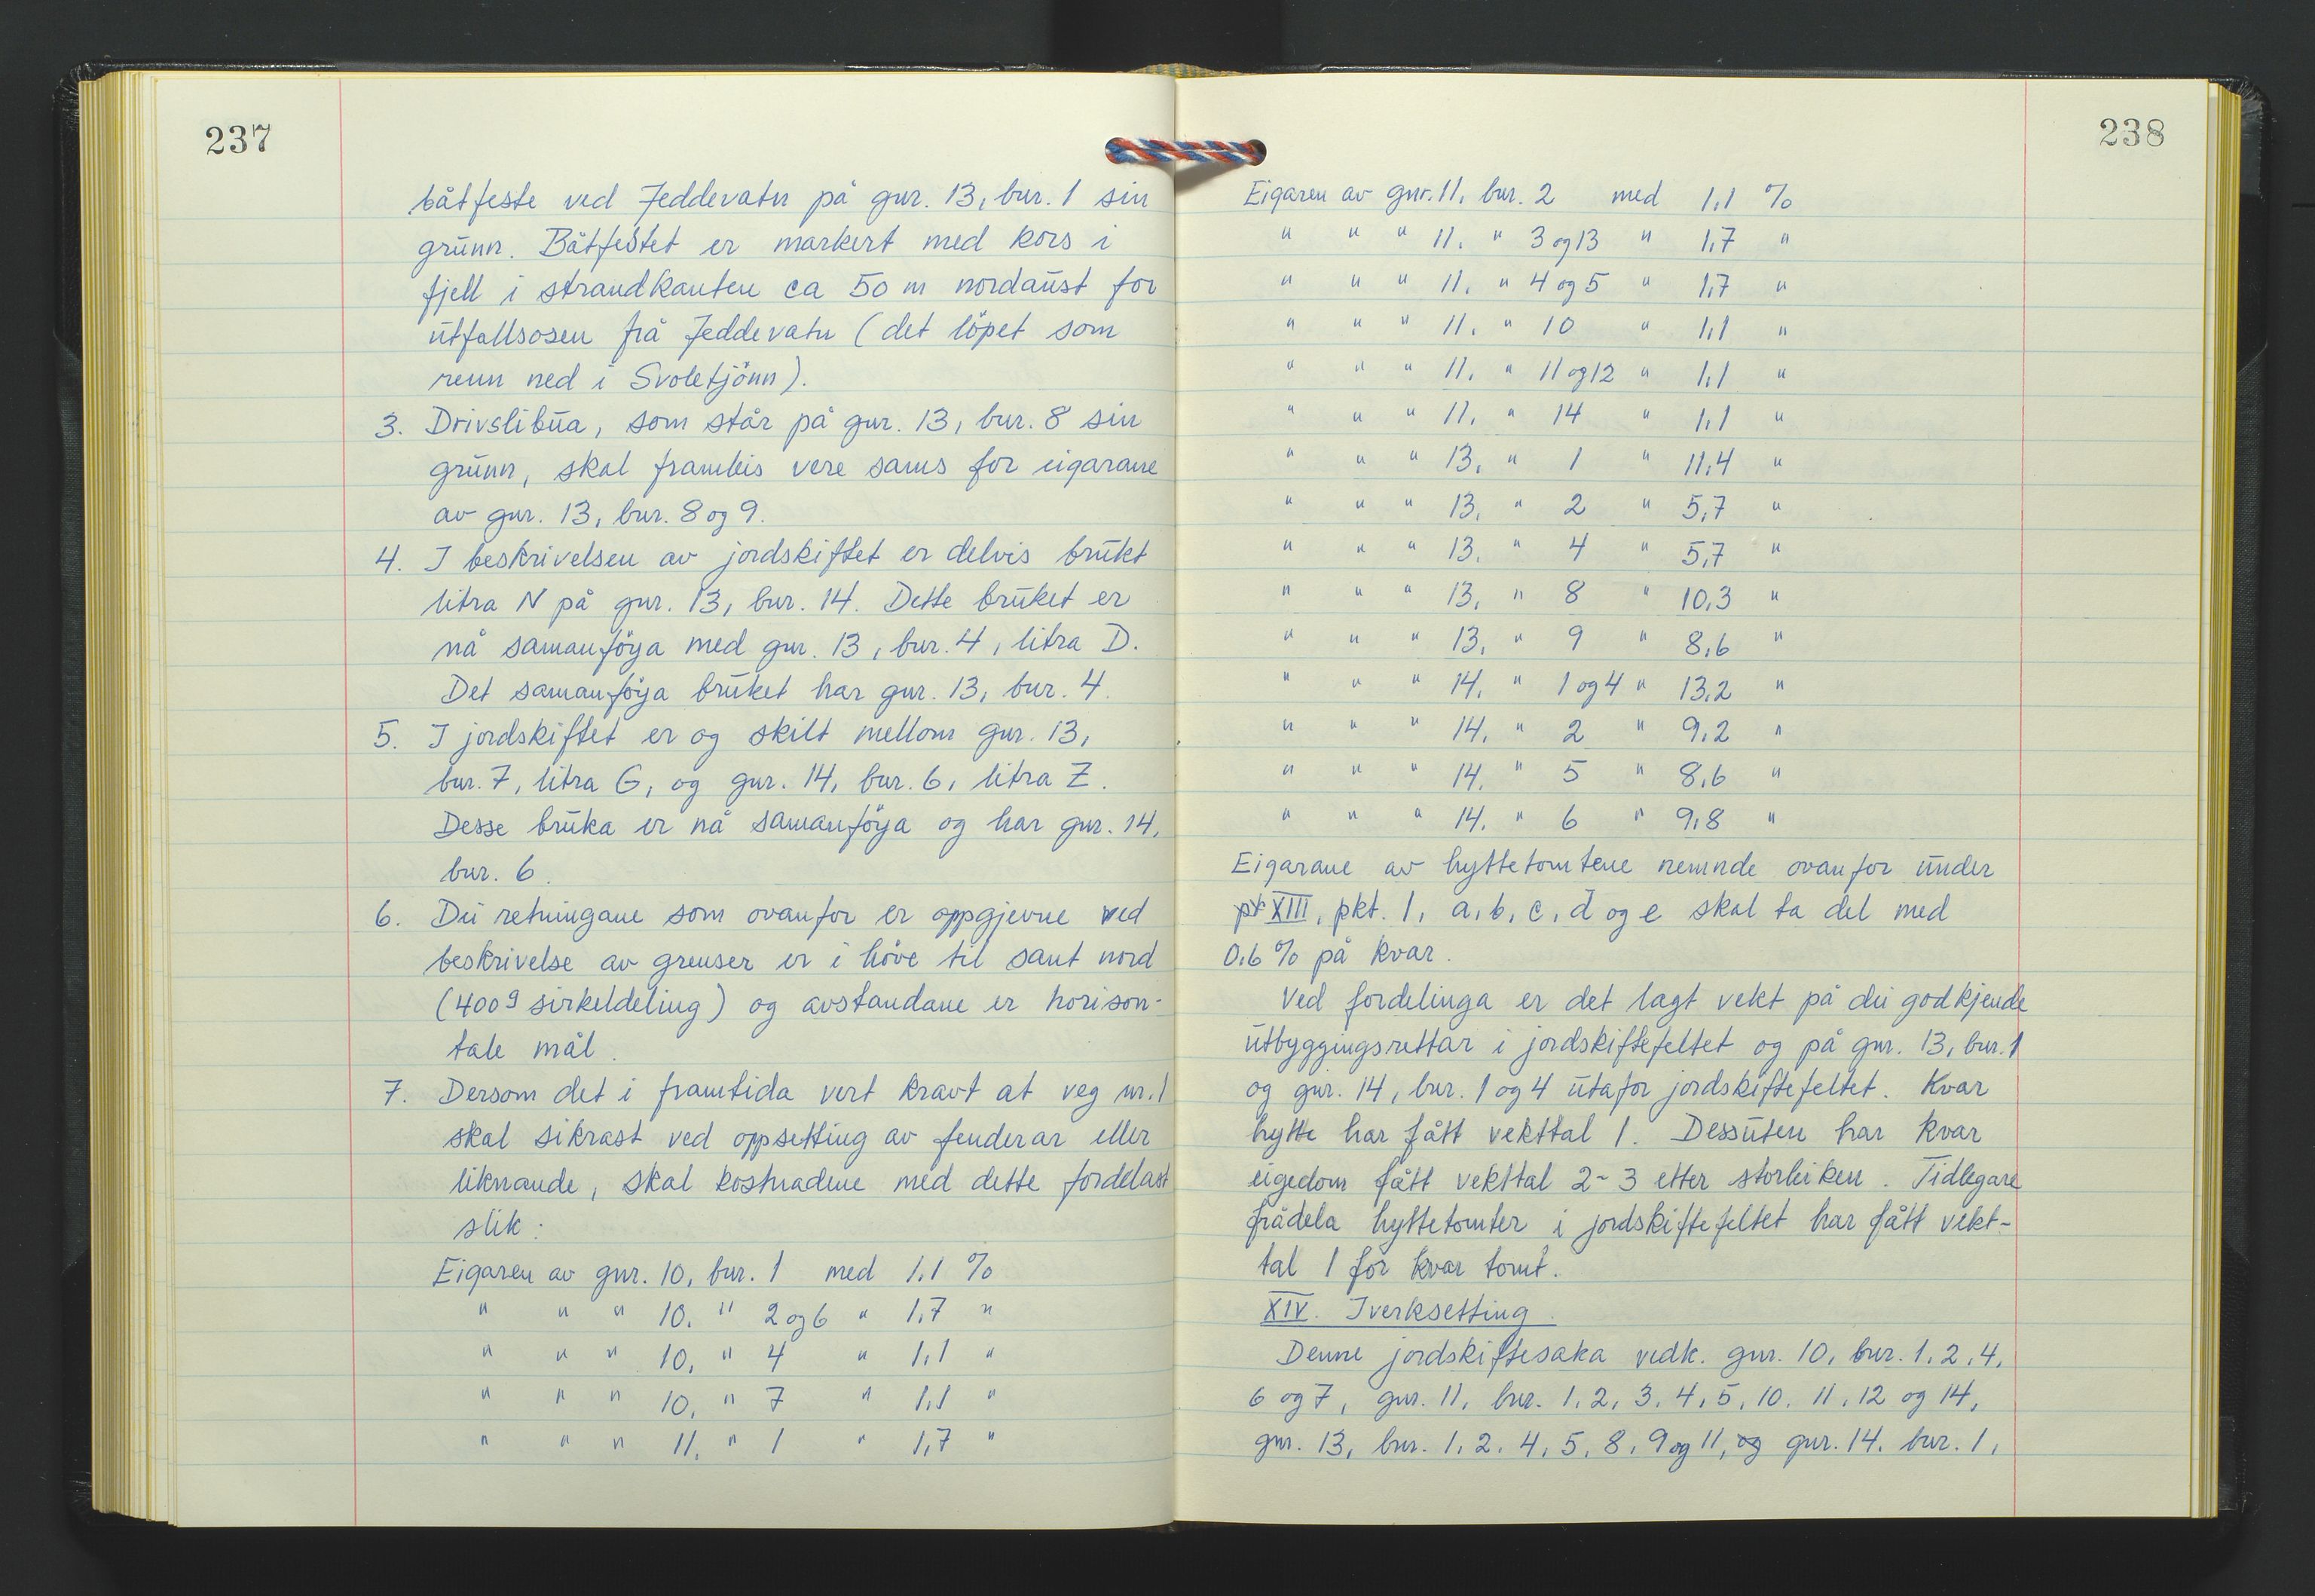 237
båtfeste ved Jeddevatn på gnr. 13, bnr. 1 sin
grunn. Båtfestet er markert med kors i
fjell i strandkanten ca 50 m nordaust for
utfallsosen frå Jeddevatn (det löpet som
renn ned i Svoletjönn).
3. Drivslibua, som står på gnr. 13, bnr. 8 sin
grunn, skal frambis vere sams for eigarane
av gnr. 13, bnr. 8 og 9.
4. I beskrivelsen av jordskiftet er delvis brukt
litra N på gnr. 13, bnr. 14. Dette bruket er
nå samanföya med gnr. 13, bnr. 4, litra D.
Det samanföya bruket har gnr. 13, bnr. 4.
5. I jordskiftet er og skilt mellom gnr. 13,
bnr. 7, litra G, og gnr. 14, bnr. 6, litra Z.
Desse bruka er nå samanföya og har gnr. 14,
bnr. 6.
6. Dei retningane som ovanfor er oppgjevne ved
beskrivelse av grenser er i höve til sant nord
(400g sirkeldeling) og avstandane er horison-
tale mål.
7. Dersom det i framtida vert kravt at veg nr. 1
skal sikrast ved oppsetting av fenderar eller
liknande, skal kostnadene med dette fordelast
slik:
Eigaren av gnr. 10, bnr. 1 med 1,1 %
" " " 10, " 2 og 6 " 1,7 "
" " " 10, " 4 " 1,1 "
" " " 10, " 7 " 1,1 "
" " " 11, " 1 " 1,7 "
238
Eigaren av gnr. 11, bnr. 2 med 1,1 %
" " " 11, " 3 og 13 " 1,7 "
" " " 11, " 4 og 5 " 1,7 "
" " " 11, " 10 " 1,1 "
" " " 11, " 11 og 12 " 1,1 "
" " " 11, " 14 " 1,1 "
" " " 13, " 1 " 11,4 "
" " " 13, " 2 " 5,7 "
" " " 13, " 4 " 5,7 "
" " " 13, " 8 " 10,3 "
" " " 13, " 9 " 8,6 "
" " " 14, " 1 og 4 " 13,2 "
" " " 14, " 2 " 9,2 "
" " " 14, " 5 " 8,6 "
" " " 14, " 6 " 9,8 "
Eigarane av hyttetomtene nemnde ovanfor under
XIII, pkt. 1, a, b, c, d og e skal ta del med
0,6 % på kvar.
Ved fordelinga er det lagt vekt på dei godkjende
utbyggingsrettar i jordskiftefeltet og på gnr. 13, bnr. 1
og gnr. 14, bnr. 1 og 4 utafor jordskiftefeltet. Kvar
hytte har fått vekttal 1. Dessuten har kvar
eigedom fått vekttal 2-3 etter storleiken. Tidlegare
frådela hyttetomter i jordskiftefeltet har fått vekt-
tal 1 for kvar tomt.
XIV. Iverksetting.
Denne jordskiftesaka vedk. gnr. 10, bnr. 1, 2, 4,
6 og 7, gnr. 11, bnr. 1, 2, 3, 4, 5, 10, 11, 12 og 14,
gnr. 13, bnr. 1, 2, 4, 5, 8, 9 og 11, og gnr. 14, bnr. 1,